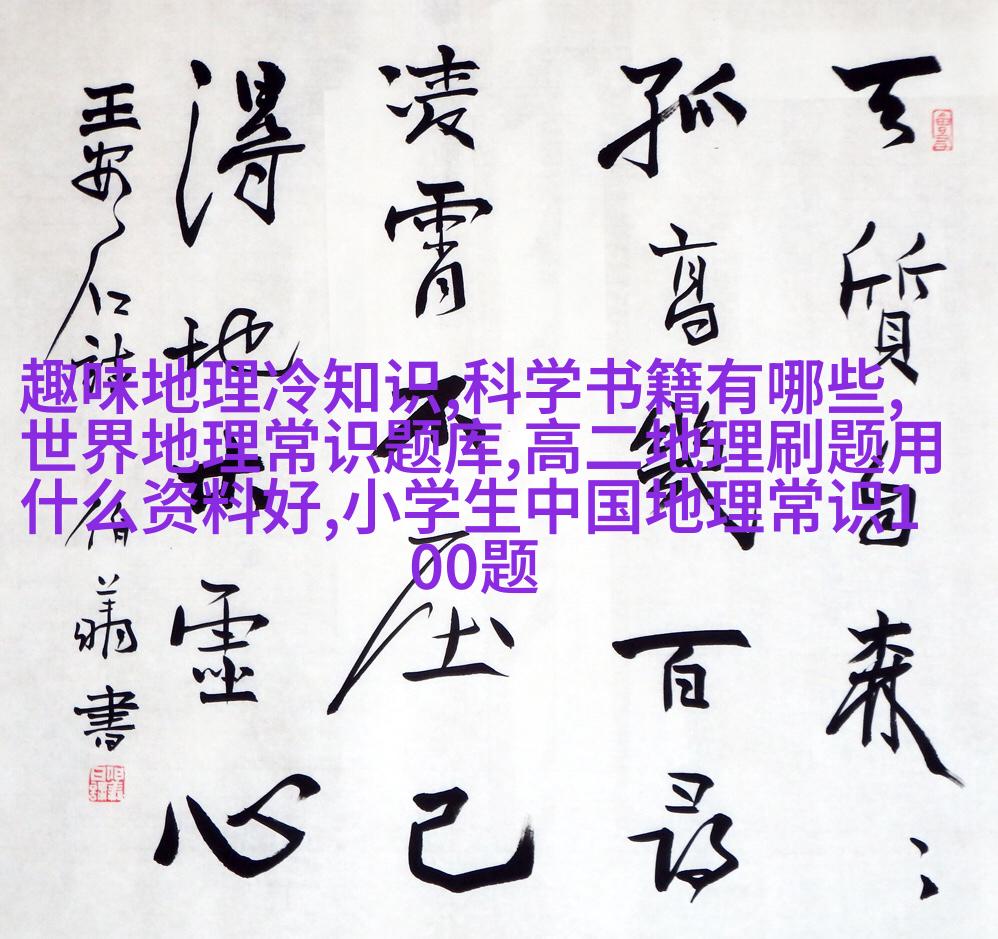 趣味地理冷知识,科学书籍有哪些,
世界地理常识题库,高二地理刷题用
什么资料好,小学生中国地理常识1
00题
天質自森〻
孤高幾百尋
凌霄不屈己
得地本虛心
王安石詩 書